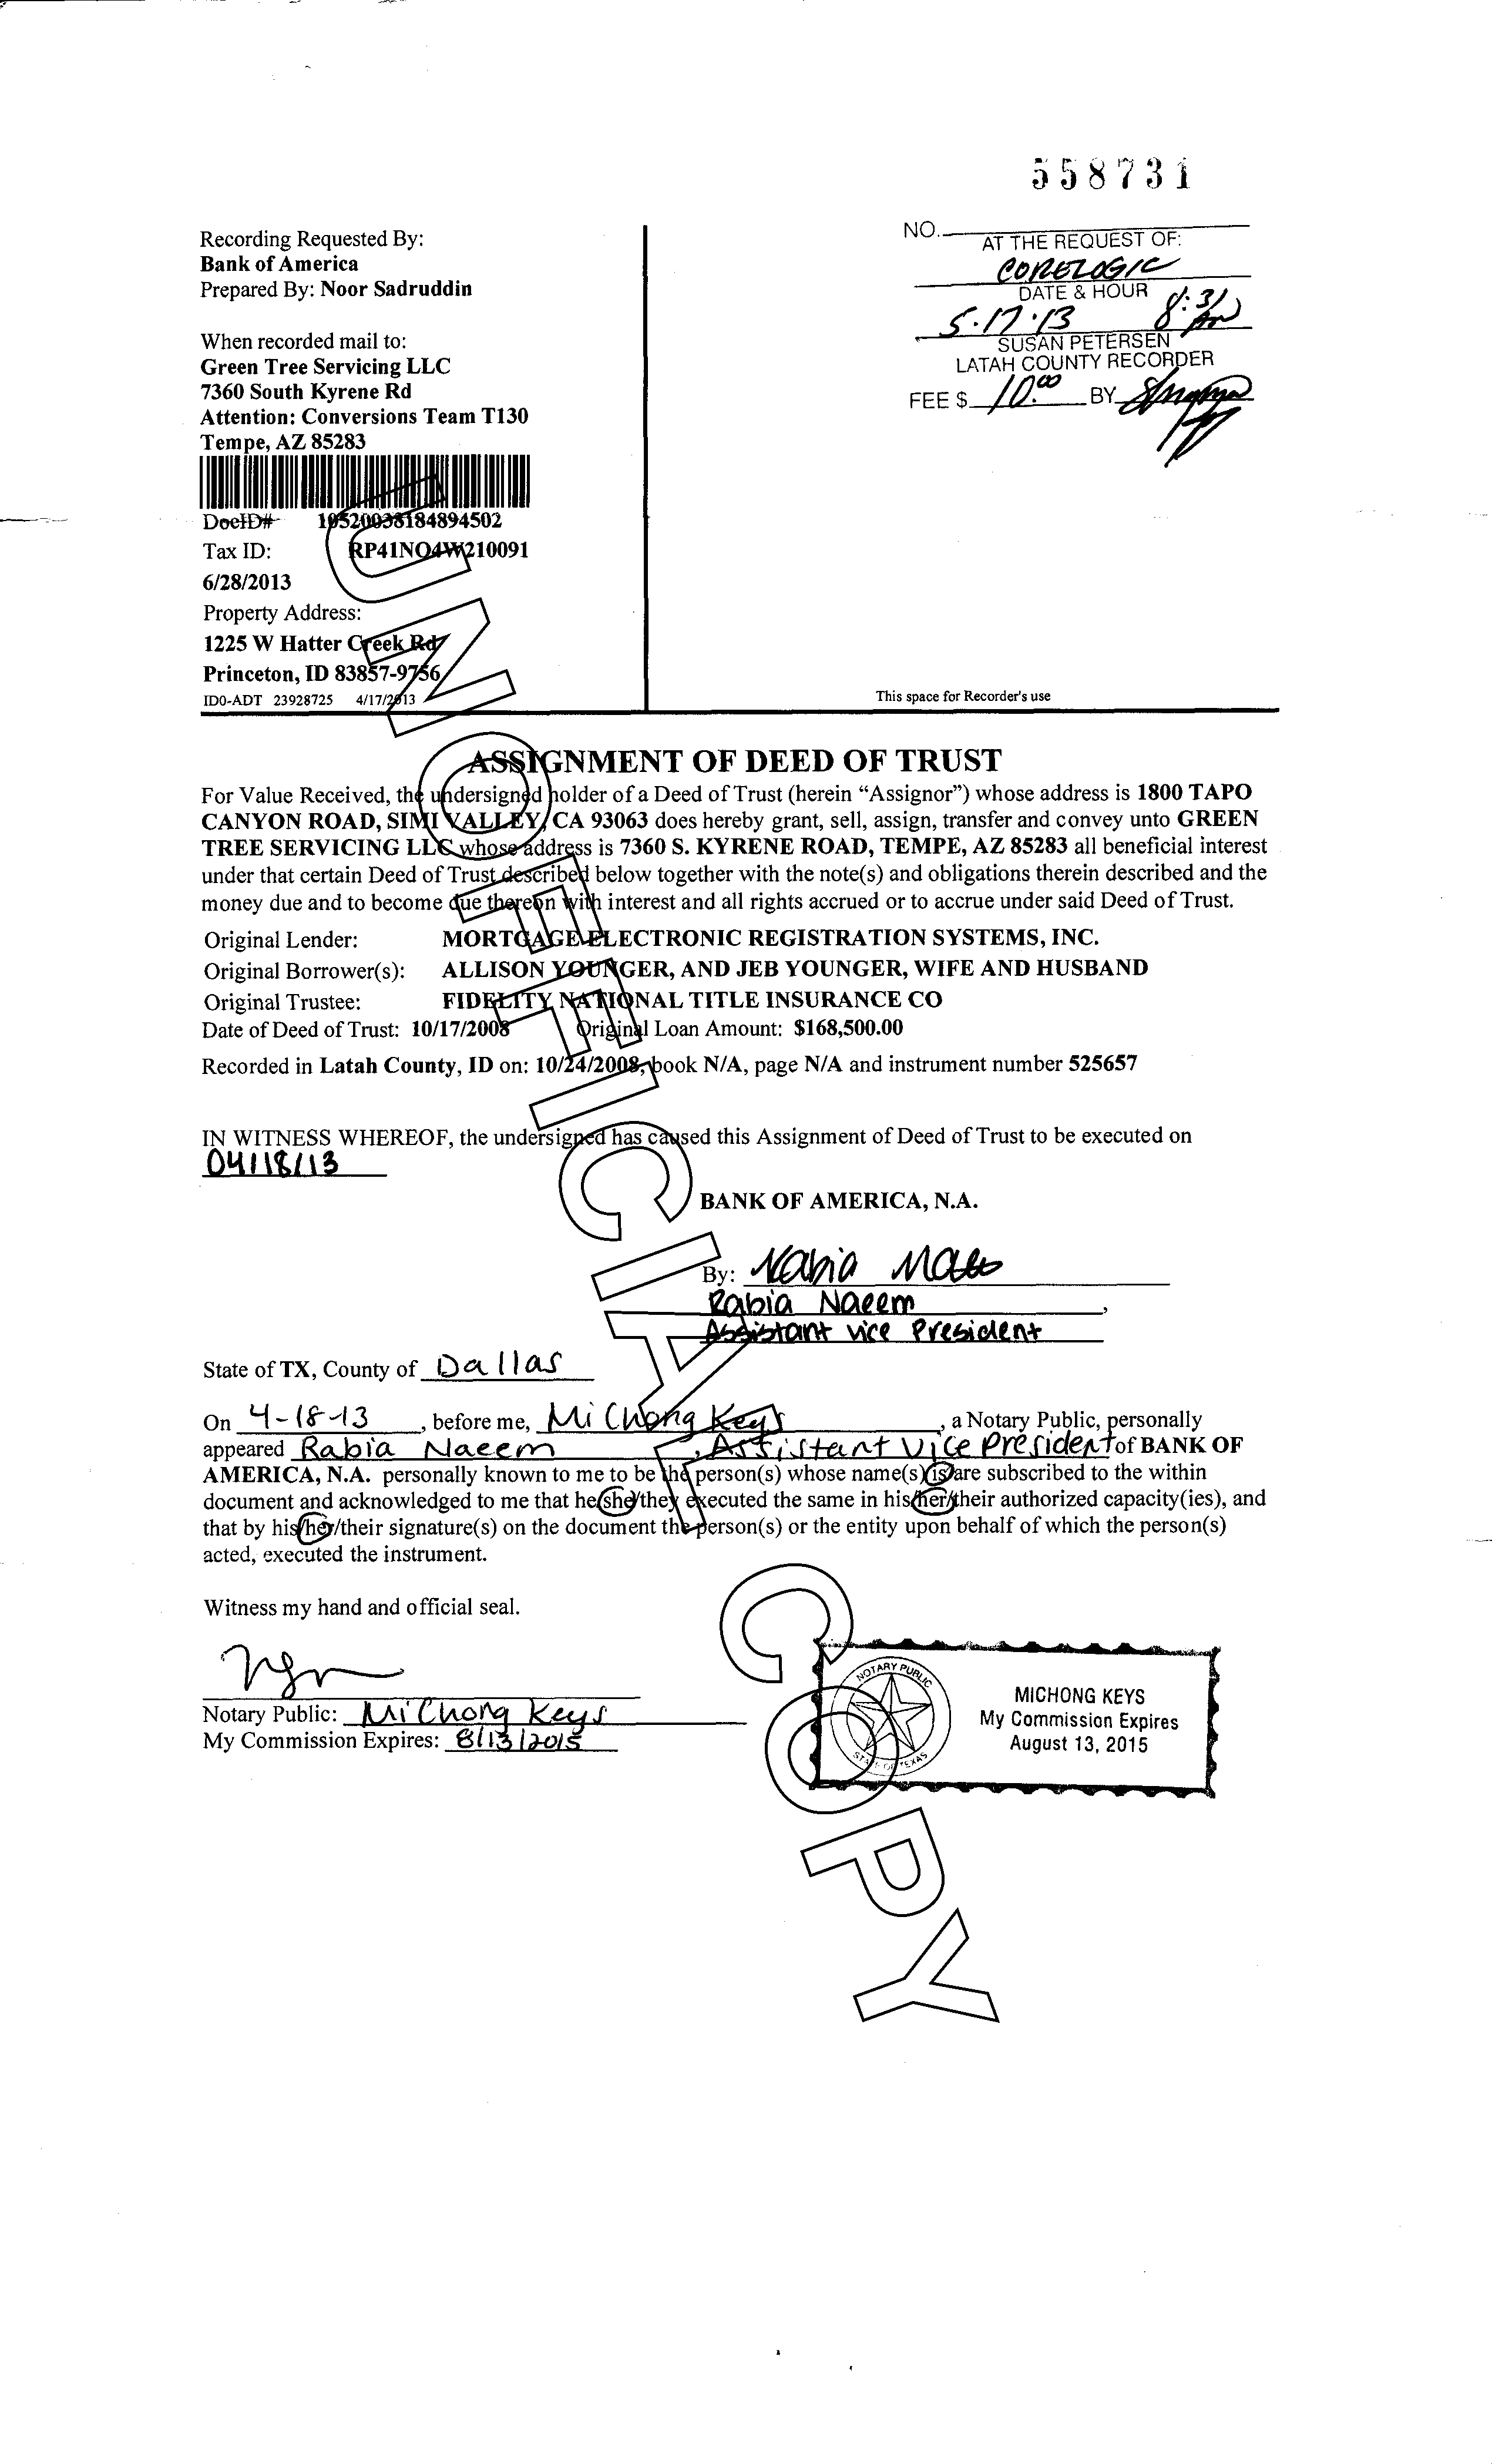 558731
Recording Requested By:
Bank of America
Prepared By: Noor Sadruddin
When recorded mail to:
Green Tree Servicing LLC
7360 South Kyrene Rd
Attention: Conversions Team T130
Tempe, AZ 85283
DocID# 10520038184894502
Tax ID: RP41NO4W210091
6/28/2013
Property Address:
1225 W Hatter Creek Rd
Princeton, ID 83857-9756
ID0-ADT 23928725 4/17/2013
NO.
AT THE REQUEST OF:
CORELOGIC
DATE & HOUR
5·17·13 8:31 AM
SUSAN PETERSEN
LATAH COUNTY RECORDER
FEE $ 10.00 BY
This space for Recorder's use
ASSIGNMENT OF DEED OF TRUST
For Value Received, the undersigned holder of a Deed of Trust (herein “Assignor”) whose address is 1800 TAPO
CANYON ROAD, SIMI VALLEY, CA 93063 does hereby grant, sell, assign, transfer and convey unto GREEN
TREE SERVICING LLC whose address is 7360 S. KYRENE ROAD, TEMPE, AZ 85283 all beneficial interest
under that certain Deed of Trust described below together with the note(s) and obligations therein described and the
money due and to become due thereon with interest and all rights accrued or to accrue under said Deed of Trust.
Original Lender: MORTGAGE ELECTRONIC REGISTRATION SYSTEMS, INC.
Original Borrower(s): ALLISON YOUNGER, AND JEB YOUNGER, WIFE AND HUSBAND
Original Trustee: FIDELITY NATIONAL TITLE INSURANCE CO
Date of Deed of Trust: 10/17/2008 Original Loan Amount: $168,500.00
Recorded in Latah County, ID on: 10/24/2008, book N/A, page N/A and instrument number 525657
IN WITNESS WHEREOF, the undersigned has caused this Assignment of Deed of Trust to be executed on
04/18/13
BANK OF AMERICA, N.A.
By:
Rabia Naeem,
Assistant vice President
State of TX, County of Dallas
On 4-18-13, before me, Mi Chong Keys, a Notary Public, personally
appeared Rabia Naeem, Assistant Vice President of BANK OF
AMERICA, N.A. personally known to me to be the person(s) whose name(s) is/are subscribed to the within
document and acknowledged to me that he/she/they executed the same in his/her/their authorized capacity(ies), and
that by his/her/their signature(s) on the document the person(s) or the entity upon behalf of which the person(s)
acted, executed the instrument.
Witness my hand and official seal.
Notary Public: Mi Chong Keys
My Commission Expires: 8/13/2015
NOTARY PUBLIC
STATE OF TEXAS
MICHONG KEYS
My Commission Expires
August 13, 2015
UNOFFICIAL COPY